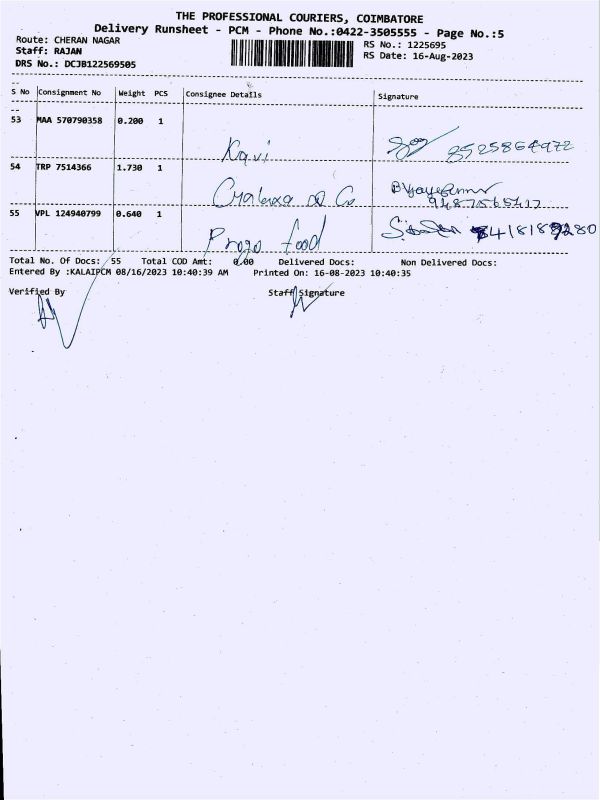 THE PROFESSIONAL COURIERS, COIMBATORE
Delivery Runsheet - PCM - Phone No.:0422-3505555 - Page No.:5
Route: CHERAN NAGAR
Staff: RAJAN
DRS No.: DCJB122569505
RS No.: 1225695
RS Date: 16-Aug-2023
S No Consignment No Weight PCS Consignee Details Signature
53 MAA 570790358 0.200 1
Kavi 8525864972
54 TRP 7514366 1.730 1
& Co 9487565417
55 VPL 124940799 0.640 1
Progo food
Total No. Of Docs: 55 Total COD Amt: 0.00 Delivered Docs: Non Delivered Docs:
Entered By :KALAIPCM 08/16/2023 10:40:39 AM Printed On: 16-08-2023 10:40:35
Verified By Staff Signature